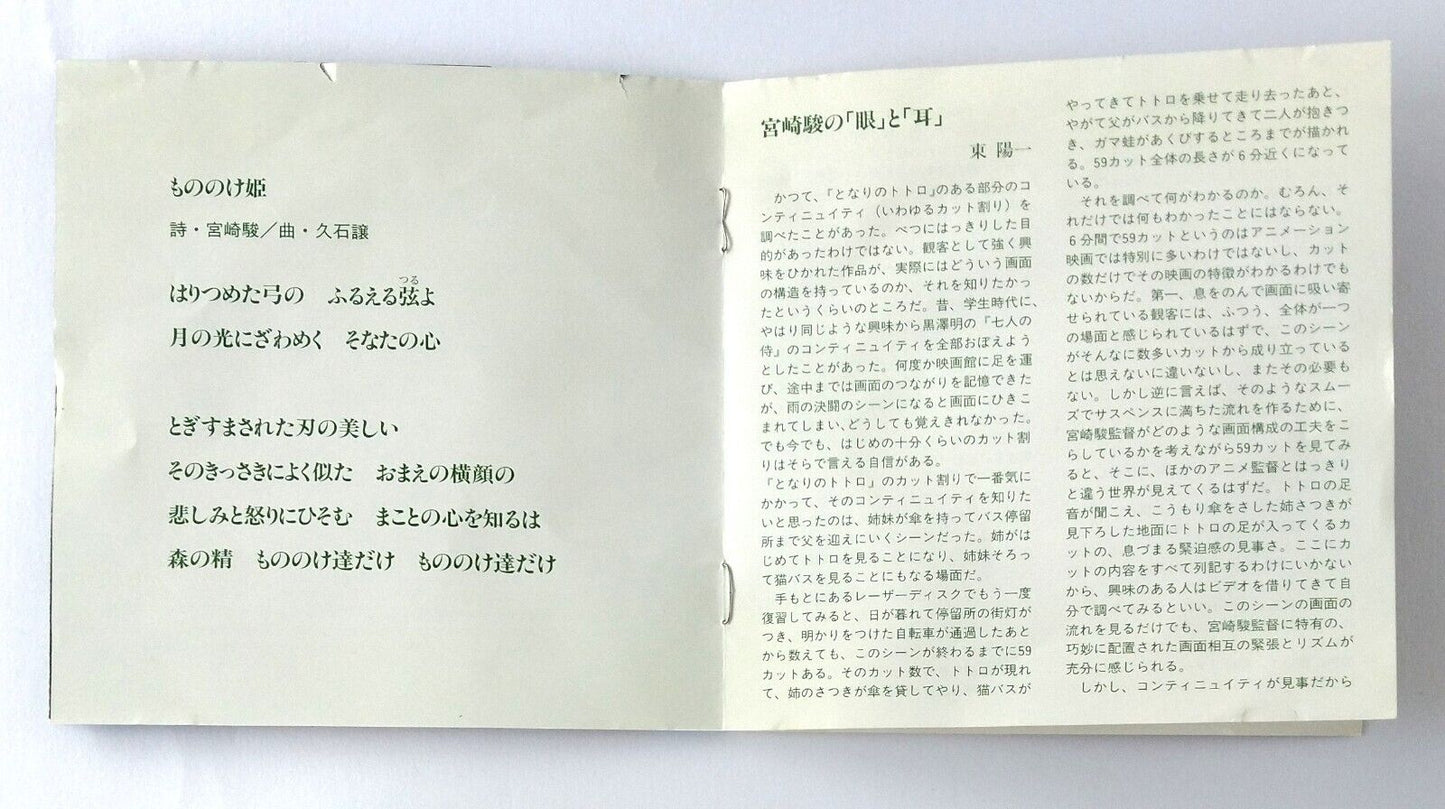 もののけ姫
詩・宮崎駿／曲・久石譲
はりつめた弓の　ふるえる弦よ
つる
月の光にざわめく　そなたの心
とぎすまされた刃の美しい
そのきっさきによく似た　おまえの横顔の
悲しみと怒りにひそむ　まことの心を知るは
森の精　もののけ達だけ　もののけ達だけ
宮崎駿の「眼」と「耳」
東 陽一
かつて、「となりのトトロ」のある部分のコ
ンティニュイティ（いわゆるカット割り）を
調べたことがあった。べつにはっきりした目
的があったわけではない。観客として強く興
味をひかれた作品が、実際にはどういう画面
の構造を持っているのか、それを知りたかっ
たというくらいのところだ。昔、学生時代に、
やはり同じような興味から黒澤明の『七人の
侍』のコンティニュイティを全部おぼえよう
としたことがあった。何度か映画館に足を運
び、途中までは画面のつながりを記憶できた
が、雨の決闘のシーンになると画面にひきこ
まれてしまい、どうしても覚えきれなかった。
でも今でも、はじめの十分くらいのカット割
りはそらで言える自信がある。
『となりのトトロ』のカット割りで一番気に
かかって、そのコンティニュイティを知りた
いと思ったのは、姉妹が傘を持ってバス停留
所まで父を迎えにいくシーンだった。姉がは
じめてトトロを見ることになり、姉妹そろっ
て猫バスを見ることにもなる場面だ。
手もとにあるレーザーディスクでもう一度
復習してみると、日が暮れて停留所の街灯が
つき、明かりをつけた自転車が通過したあと
から数えても、このシーンが終わるまでに59
カットある。そのカット数で、トトロが現れ
て、姉のさつきが傘を貸してやり、猫バスが
やってきてトトロを乗せて走り去ったあと、
やがて父がバスから降りてきて二人が抱きつ
き、ガマ蛙があくびするところまでが描かれ
る。59カット全体の長さが６分近くになって
いる。
それを調べて何がわかるのか。むろん、そ
れだけでは何もわかったことにはならない。
６分間で59カットというのはアニメーション
映画では特別に多いわけではないし、カット
の数だけでその映画の特徴がわかるわけでも
ないからだ。第一、息をのんで画面に吸い寄
せられている観客には、ふつう、全体が一つ
の場面と感じられているはずで、このシーン
がそんなに数多いカットから成り立っている
とは思えないに違いないし、またその必要も
ない。しかし逆に言えば、そのようなスムー
ズでサスペンスに満ちた流れを作るために、
宮崎駿監督がどのような画面構成の工夫をこ
らしているかを考えながら59カットを見てみ
ると、そこに、ほかのアニメ監督とはっきり
と違う世界が見えてくるはずだ。トトロの足
音が聞こえ、こうもり傘をさした姉さつきが
見下ろした地面にトトロの足が入ってくるカ
ットの、息づまる緊迫感の見事さ。ここにカ
ットの内容をすべて列記するわけにいかない
から、興味のある人はビデオを借りてきて自
分で調べてみるといい。このシーンの画面の
流れを見るだけでも、宮崎駿監督に特有の、
巧妙に配置された画面相互の緊張とリズムが
充分に感じられる。
しかし、コンティニュイティが見事だから